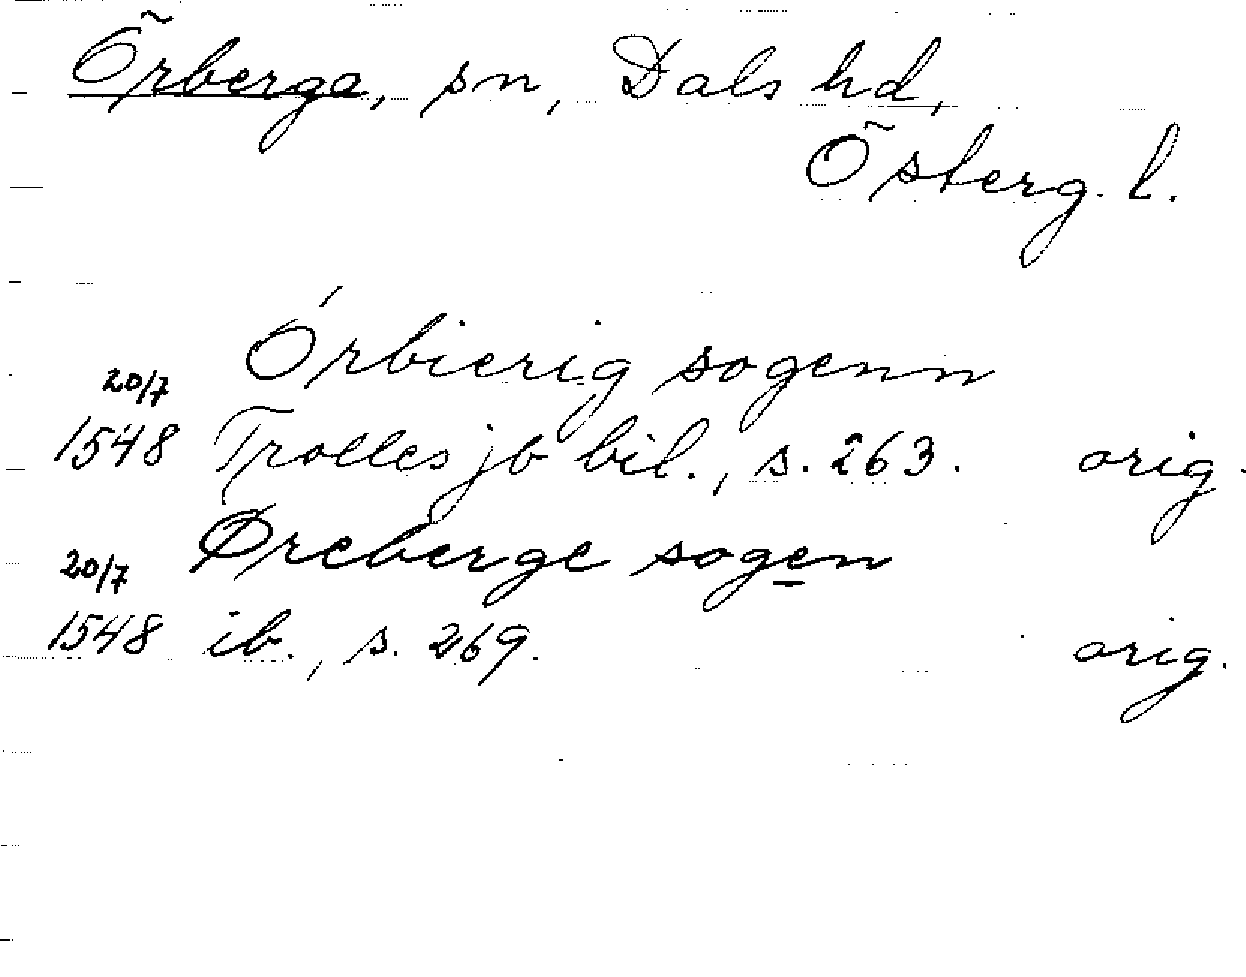 Örberga, sn, Dals hd,
Österg. l.
Órbierig sogenn
20/7
1548 Trolles jb bil., s. 263. orig.
Øreberge sogen
20/7
1548 ib., s. 269. orig.